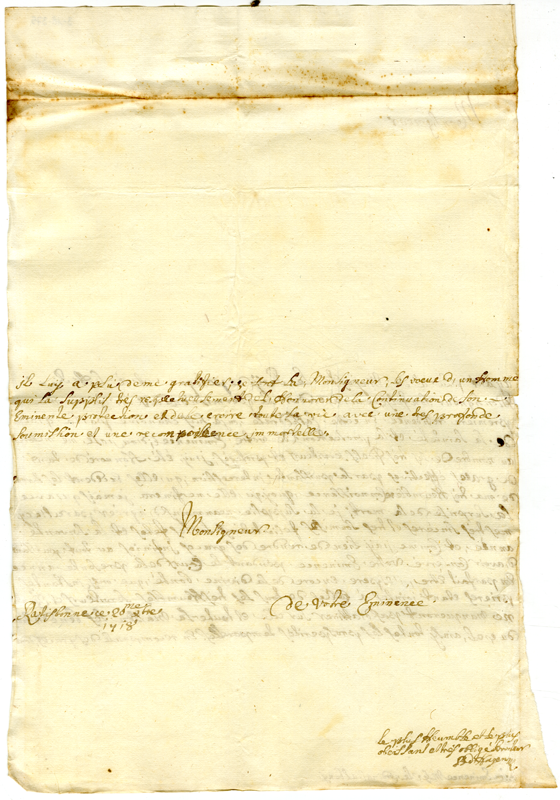 il luy a plu de me gratifier, c'est là Monsigneur, les voeux d'un homme
qui la supplie tres respectueusement de l'honnorer de la Continuation de son
Eminente protection et de le croire toute sa vie avec une tres profonde
soumission et une immortelle.
Monsigneur
De Votre Eminence
Ratisbonne ce 26me
1718
le plus Heumble et le plus
obeissant et tres obligé serviteur